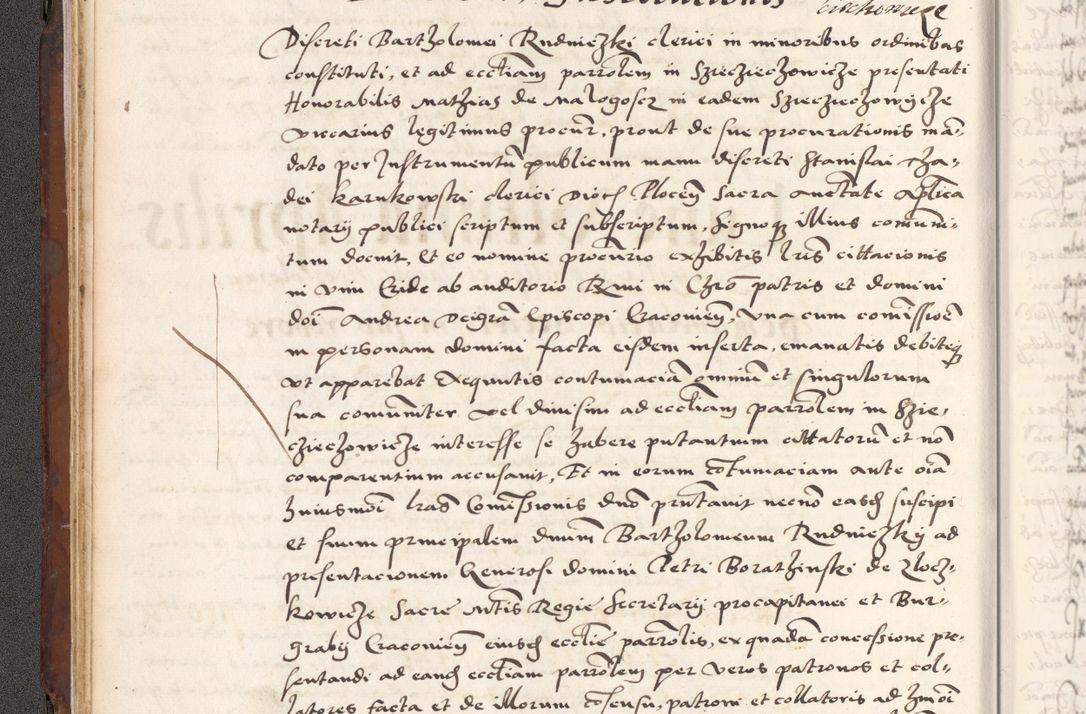 Discreti Bartholomei Rudniczki clerici in minoribus ordinibus
constituti, et ad eccliam parrolem in Szieciechowicze presentati
Honorabilis Mathias de Malogoscz in eadem Szieciechowycze
vicarius legitimus procur, prout de sue procurationis man-
dato per Instrumentu publicum manu discreti Stanislai Tha-
dei Karnkowski clerici Dioc Plocen Sacra auctate Aplica
notarij publici scriptum et subscriptum, signoq illius comuni-
tum docuit, Et eo nomine procurio exhibitis lris cittacionis
in vim Cride ab auditorio Rmi in Chro patris et domini
doi Andrea dei gra Episcopi Cracovien, vna cum comissioe
in personam domini facta eisdem inserta, emanatis debiteq
vt apparebat exequutis contumacia omnium et singulorum
sua comuniter vel diuisim ad eccliam parrolem in Szie-
cziechowicze interesse se habere putantium cittatoru et no
comparentium accusauit, Et in eorum cotumaciam ante oia
huiusmoi lras Comissionis dno pntauit necno easd suscipi
et suum principalem dnum Bartholomeum Rudniczky ad
presentacionem Generosi domini Petri Borathinski de Zlocz-
kowicze Sacre Mtis Regie Secretarij procapitanei et Bur-
grabij Cracovien eiusd ecclie parrolis, ex quada concessione pre-
sentandi ad eand eccliam parrolem per veros patronos et col-
latores facta et de illorum cosensu, patroni et collatoris ad hmoi